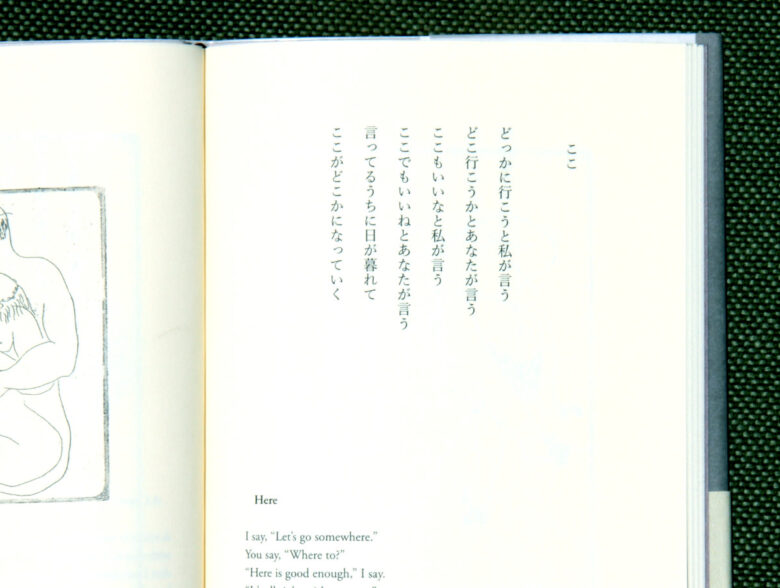 ここ
どっかに行こうと私が言う
どこ行こうかとあなたが言う
ここもいいなと私が言う
ここでもいいねとあなたが言う
言ってるうちに日が暮れて
ここがどこかになっていく
Here
I say, “Let’s go somewhere.”
You say, “Where to?”
“Here is good enough,” I say.